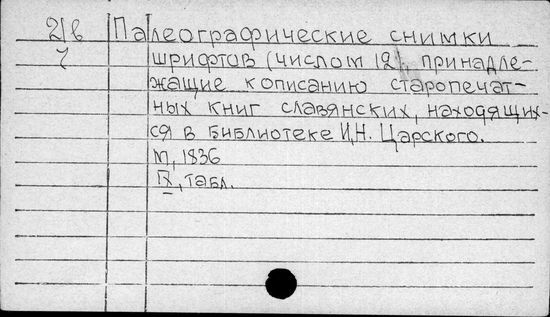 2/в Палеографические снимки
7 шрифтов (числом 12), принадле-
жащие к описанию старопечат-
ных книг славянских, находящих-
ся в библиотеке И.Н. Царского.
М, 1836
IX, табл.